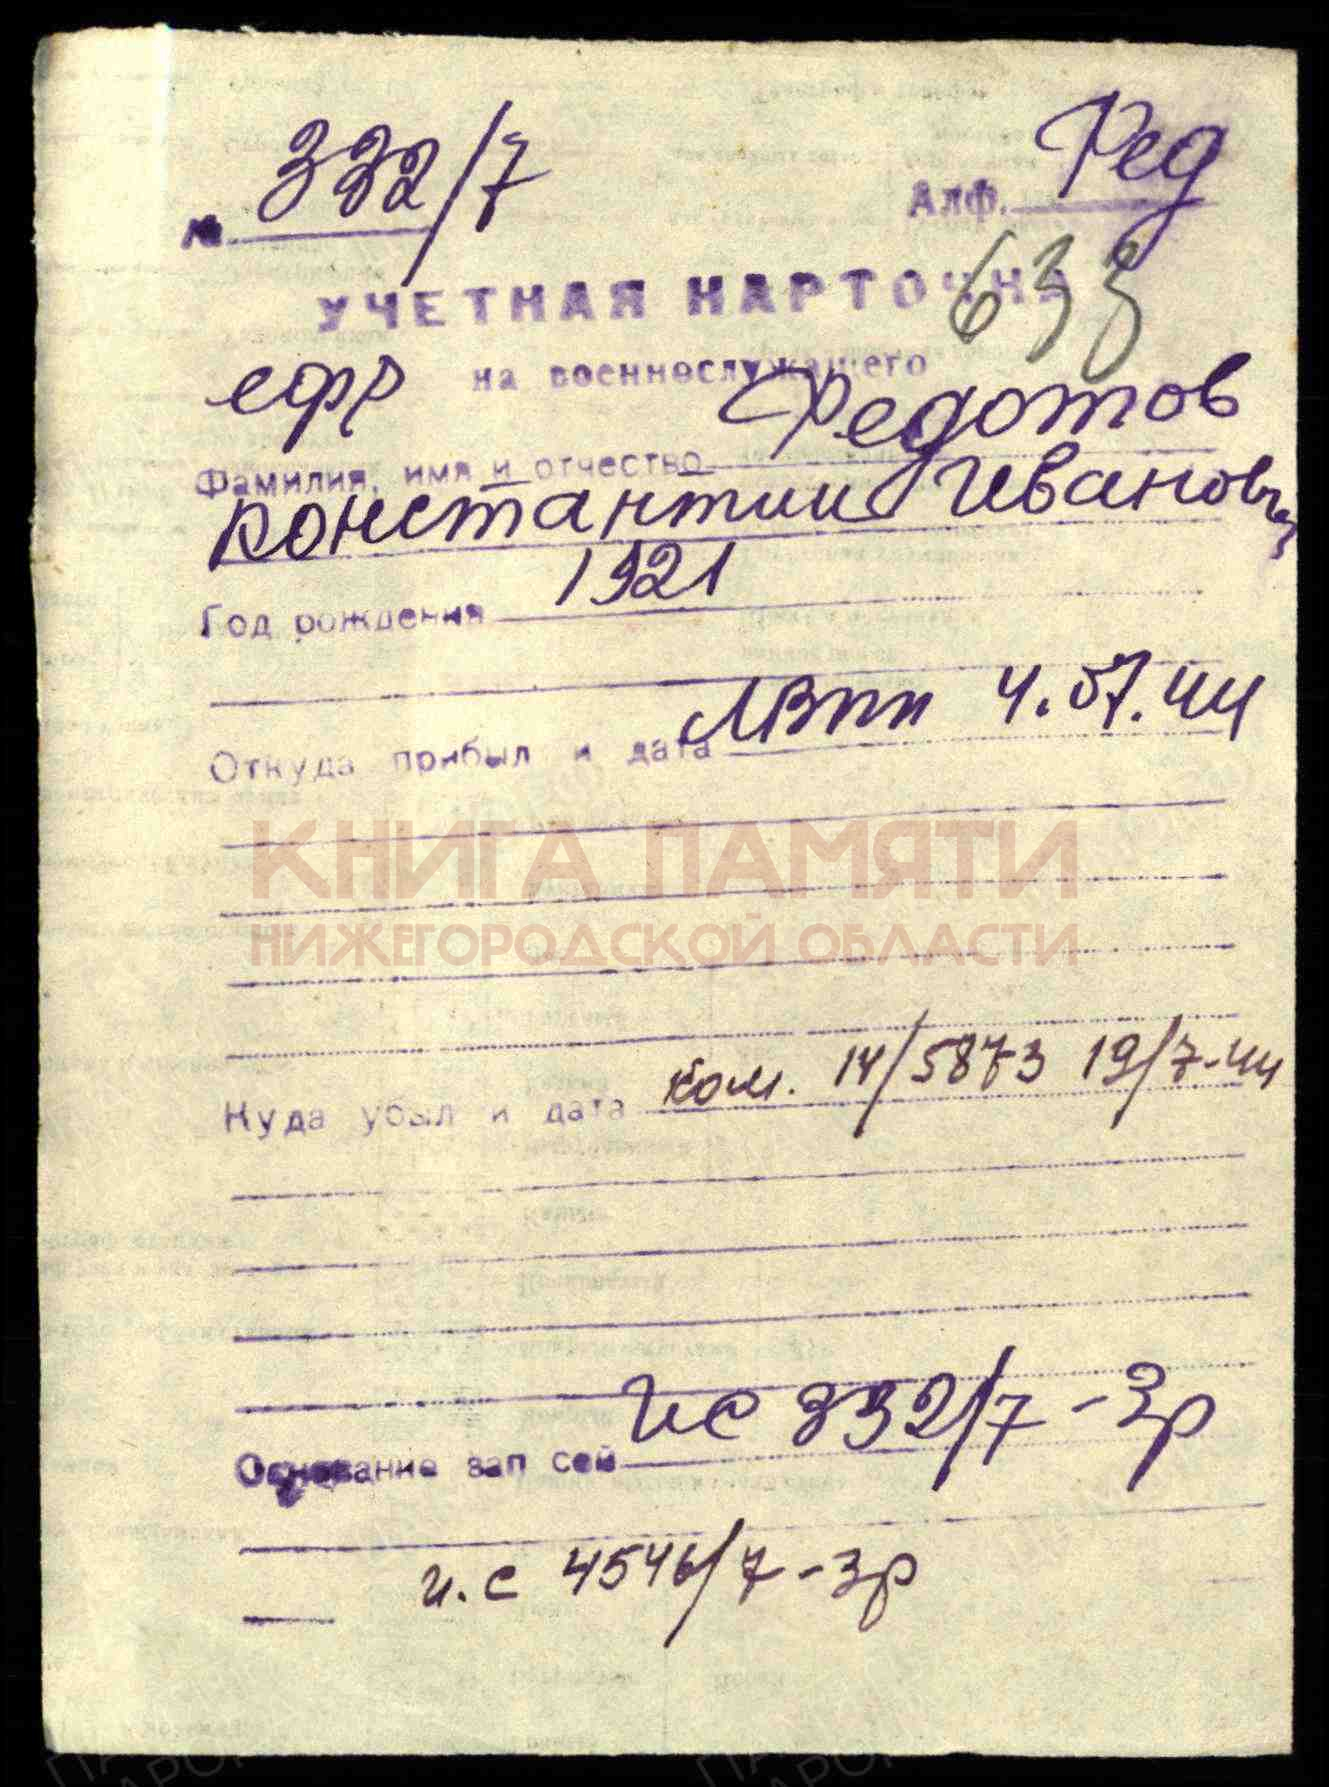 № 332/7
Алф. Фед
633
УЧЕТНАЯ КАРТОЧКА
ефр на военнослужащего
Фамилия, имя и отчество Федотов
Константин Иванович
Год рождения 1921
Откуда прибыл и дата ЛВПП 4.07.44
КНИГА ПАМЯТИ
НИЖЕГОРОДСКОЙ ОБЛАСТИ
Куда убыл и дата ком. 14/5873 19/7-44
Основание зап сей ИС 332/7-3р
И.С 4546/7-3р